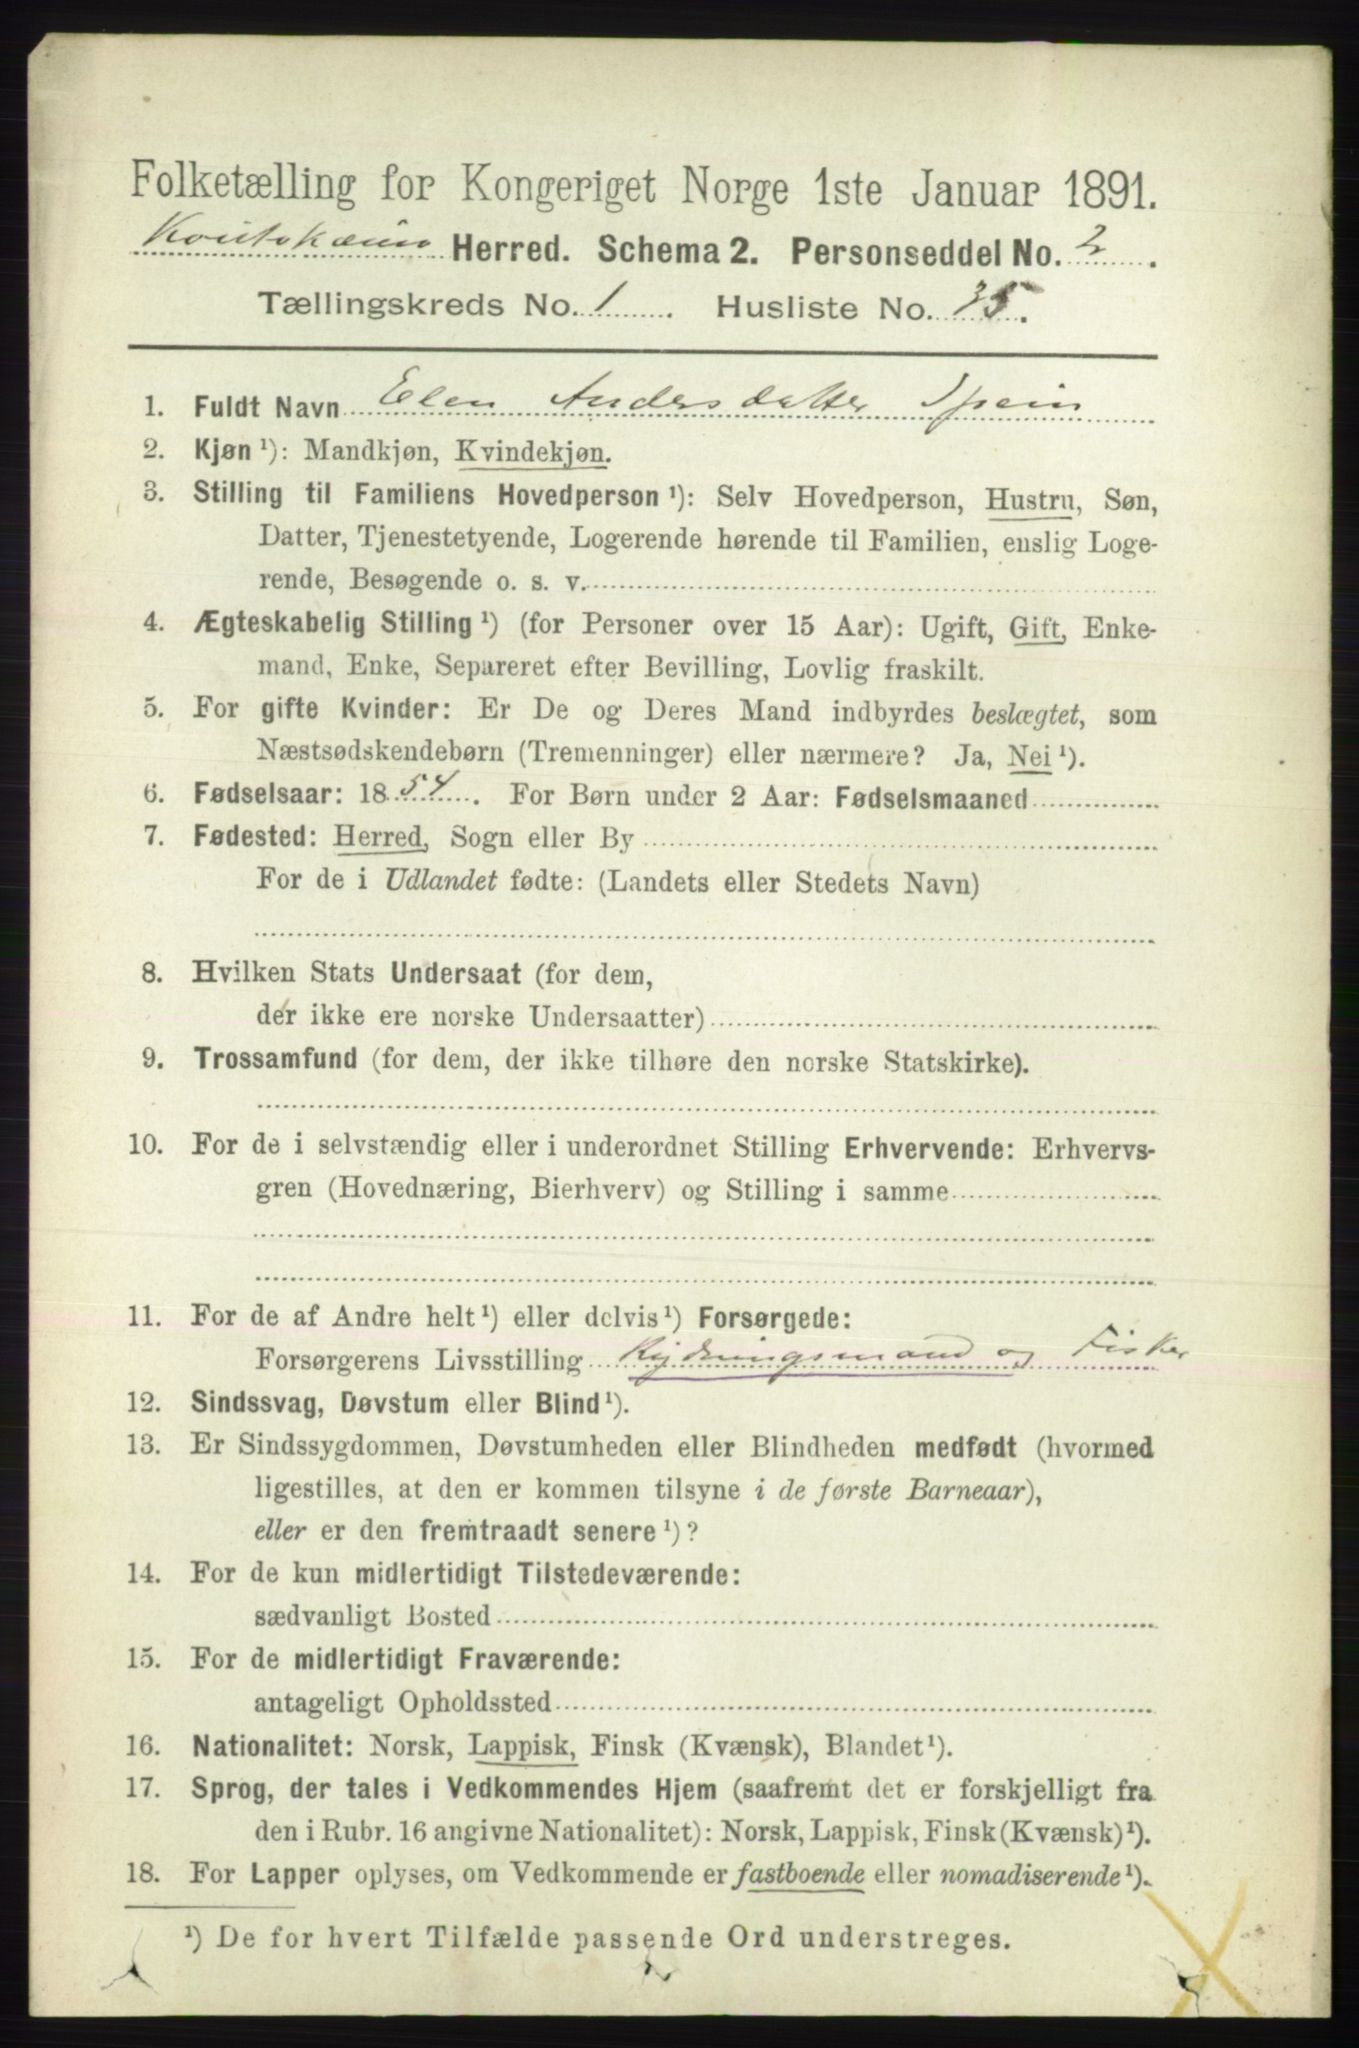 Folketælling for Kongeriget Norge 1ste Januar 1891.
Koutokæino Herred. Schema 2. Personseddel No. 2.
Tællingskreds No. 1. Husliste No. 35.
1. Fuldt Navn Elen Andersdatter Spein
2. Kjøn ¹): Mandkjøn, Kvindekjøn.
3. Stilling til Familiens Hovedperson ¹): Selv Hovedperson, Hustru, Søn,
Datter, Tjenestetyende, Logerende hørende til Familien, enslig Loge-
rende, Besøgende o. s. v.
4. Ægteskabelig Stilling ¹) (for Personer over 15 Aar): Ugift, Gift, Enke-
mand, Enke, Separeret efter Bevilling, Lovlig fraskilt.
5. For gifte Kvinder: Er De og Deres Mand indbyrdes beslægtet, som
Næstsødskendebørn (Tremenninger) eller nærmere? Ja, Nei ¹).
6. Fødselsaar: 1854. For Børn under 2 Aar: Fødselsmaaned
7. Fødested: Herred, Sogn eller By
For de i Udlandet fødte: (Landets eller Stedets Navn)
8. Hvilken Stats Undersaat (for dem,
der ikke ere norske Undersaatter)
9. Trossamfund (for dem, der ikke tilhøre den norske Statskirke).
10. For de i selvstændig eller i underordnet Stilling Erhvervende: Erhvervs-
gren (Hovednæring, Bierhverv) og Stilling i samme
11. For de af Andre helt ¹) eller delvis ¹) Forsørgede:
Forsørgerens Livsstilling Rydningsmand og Fisker
12. Sindssvag, Døvstum eller Blind ¹).
13. Er Sindssygdommen, Døvstumheden eller Blindheden medfødt (hvormed
ligestilles, at den er kommen tilsyne i de første Barneaar),
eller er den fremtraadt senere ¹)?
14. For de kun midlertidigt Tilstedeværende:
sædvanligt Bosted
15. For de midlertidigt Fraværende:
antageligt Opholdssted
16. Nationalitet: Norsk, Lappisk, Finsk (Kvænsk), Blandet ¹).
17. Sprog, der tales i Vedkommendes Hjem (saafremt det er forskjelligt fra
den i Rubr. 16 angivne Nationalitet): Norsk, Lappisk, Finsk (Kvænsk) ¹).
18. For Lapper oplyses, om Vedkommende er fastboende eller nomadiserende ¹).
¹) De for hvert Tilfælde passende Ord understreges.